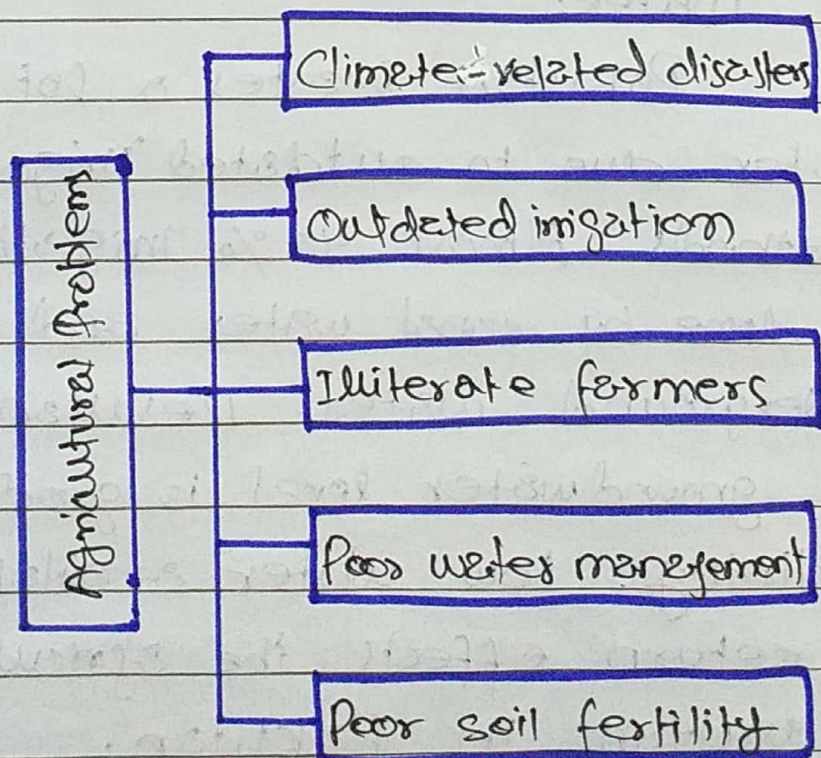 Agricultural Problems
Climate-related disasters
Outdated irrigation
Illiterate farmers
Poor water management
Poor soil fertility